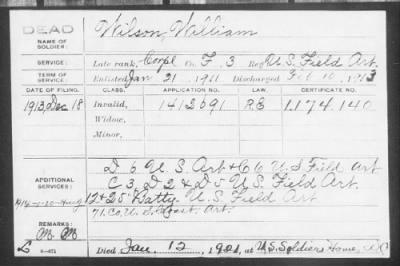 DEAD
NAME OF SOLDIER: Wilson, William
SERVICE: Late rank, Corpl Co. F. 3 Reg't U.S. Field Art.
TERM OF SERVICE: Enlisted Jan 21, 1911 Discharged Feb 10, 1913
DATE OF FILING. CLASS. APPLICATION NO. LAW. CERTIFICATE NO.
1913, Dec 18 Invalid, 1412691 1.174.140
Widow,
Minor,
ADDITIONAL SERVICES: D 6 U.S. Art & C 6 U.S Field Art
C 3, D 2 & D 5 U.S. Field Art.
12 & 28 Batty U.S. Field Art
71. Co. U.S. Coast. Art.
REMARKS:
Died Jan. 12, 1921, at U.S. Soldiers Home, D.C.